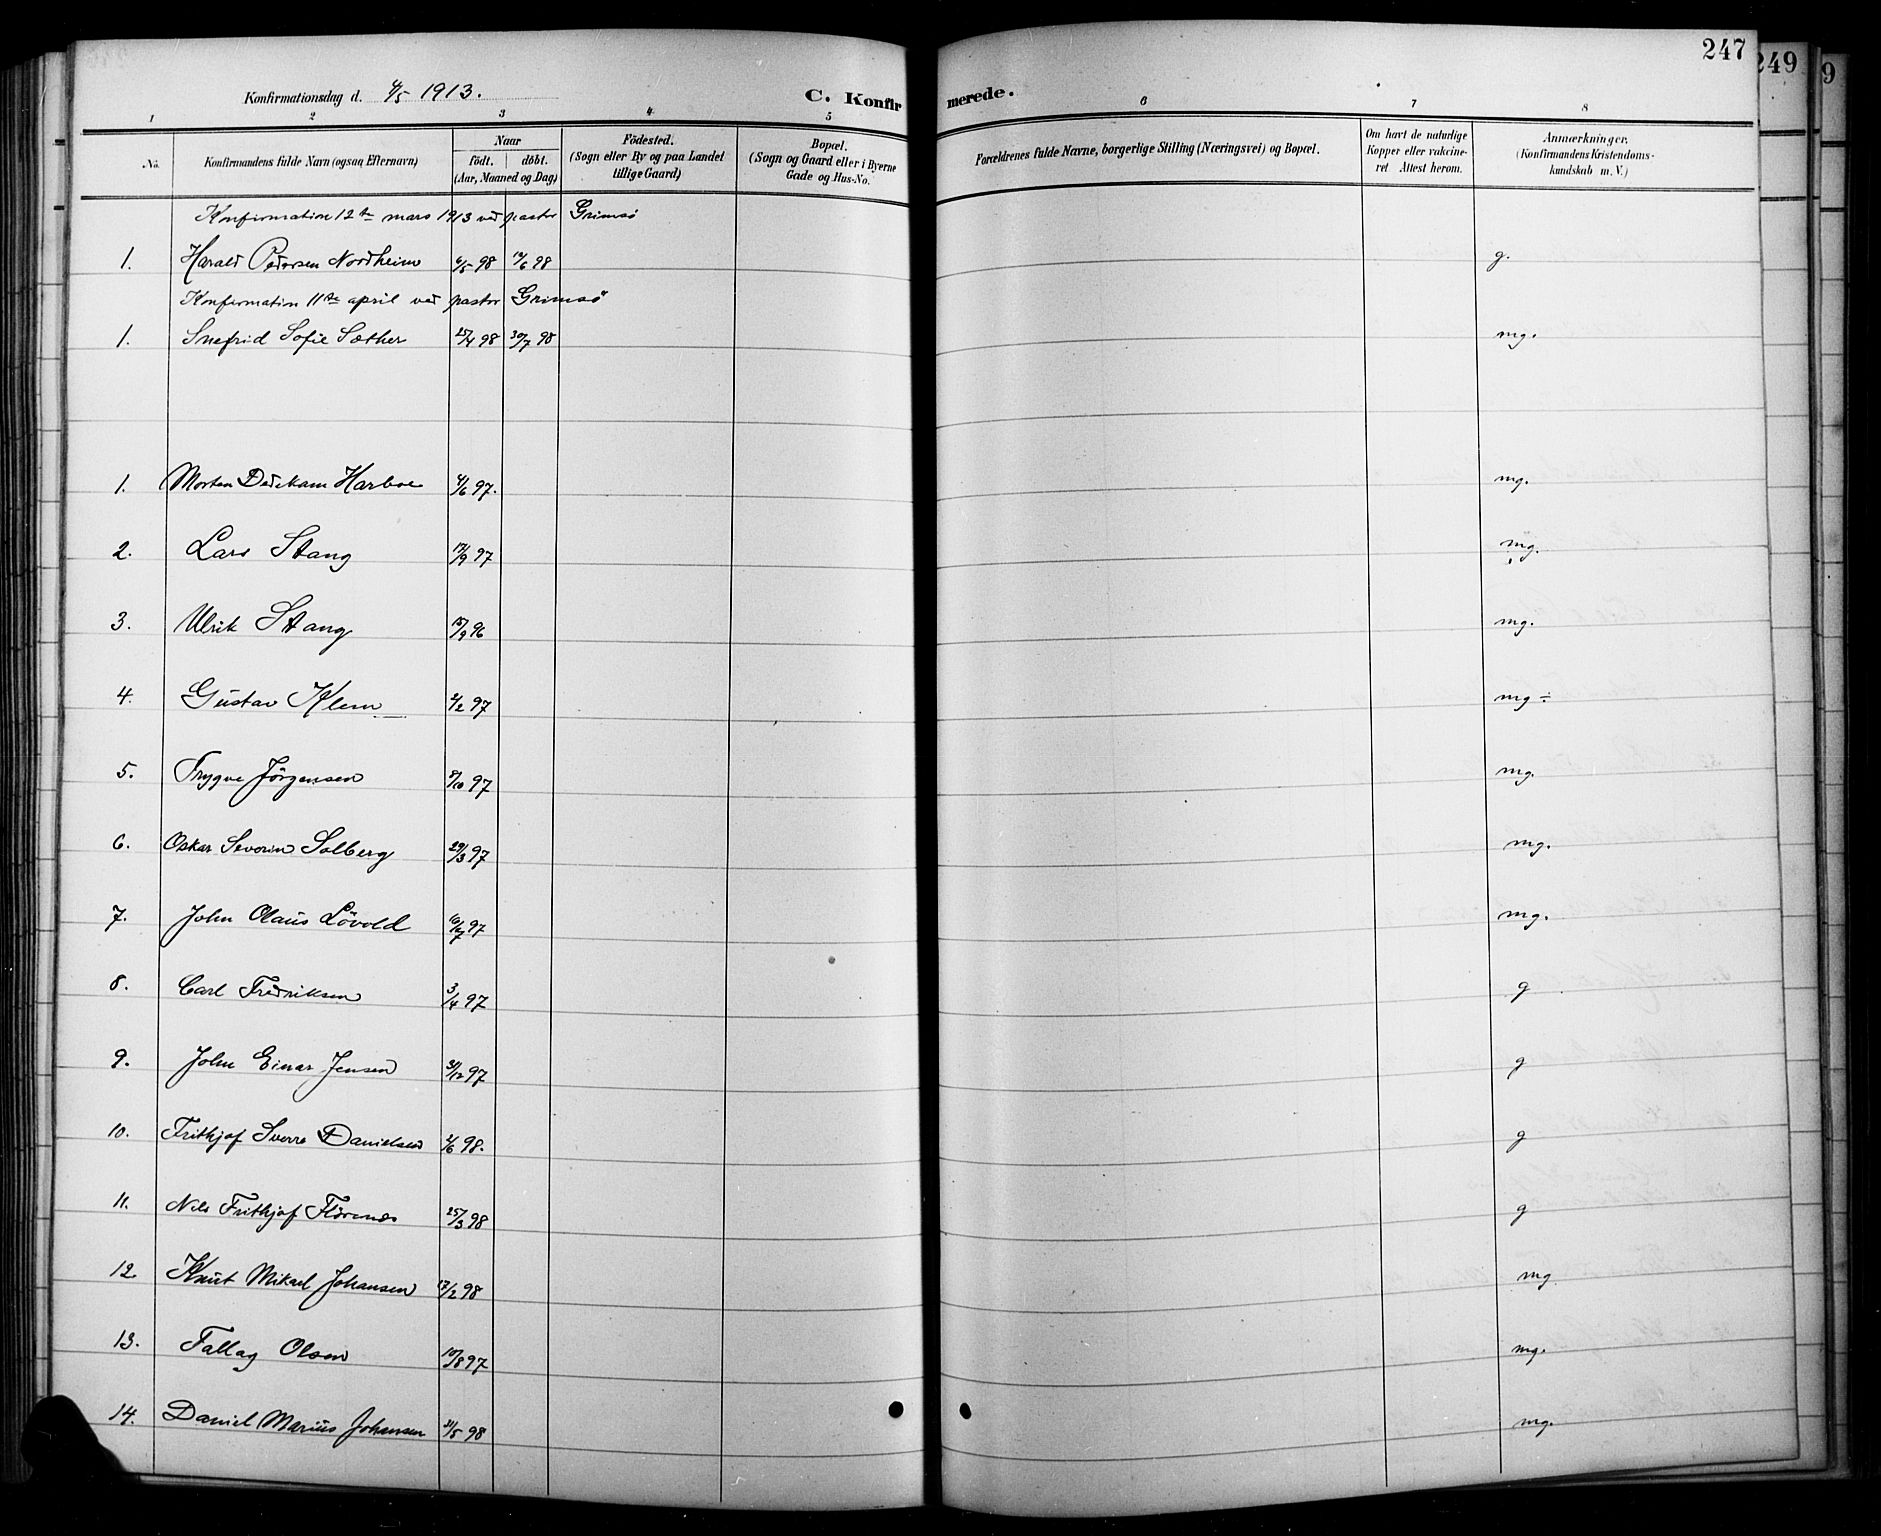 247
249
9
Konfirmationsdag d. 4/5 1913. C. Konfirmerede.
1 2 3 4 5 6 7 8
No. Konfirmandens fulde Navn (ogsaa Efternavn) Naar födt. döbt. (Aar, Maaned og Dag) Födested. (Sogn eller By og paa Landet tillige Gaard) Bopæl. (Sogn og Gaard eller i Byerne Gade og Hus-No. Forældrenes fulde Navne, borgerlige Stilling (Næringsvei) og Bopæl. Om havt de naturlige Kopper eller vakcineret Attest herom. Anmærkninger. (Konfirmandens Kristendomskundskab m. V.)
Konfirmation 12te mars 1913 ved pastor Grimsö
1. Harald Pedersen Nordheim 6/5 98 19/6 98 g.
Konfirmation 11te april ved pastor Grimsö
1. Snefrid Sofie Sæther 25/4 98 30/7 98 mg.
1. Morten Dedekam Harboe 4/6 97. mg.
2. Lars Stang 17/9 97 mg.
3. Ulrik Stang 15/9 96 mg.
4. Gustav Klem 2/2 97 mg ÷
5. Trygve Jörgensen 8/10 97 mg.
6. Oskar Severin Solberg 29/3 97 mg.
7. John Olaus Lövold 10/7 97 mg.
8. Carl Fredriksen 3/4 97 g
9. John Einar Jensen 31/12 97 g
10. Frithjof Sverre Danielsen 2/6 98. g
11. Nils Frithjof Florenæs 25/3 98 g
12. Knut Mikael Johansen 17/2 98 mg
13. Fallag Olsen 10/8 97 mg.
14. Daniel Marius Johansen 31/5 98 mg.